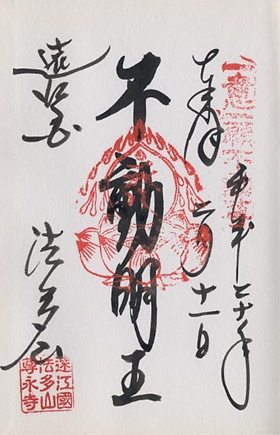 平成二十年
奉拝 二月十一日
不動明王
遠江国 法多山
遠江國
法多山
尊永寺